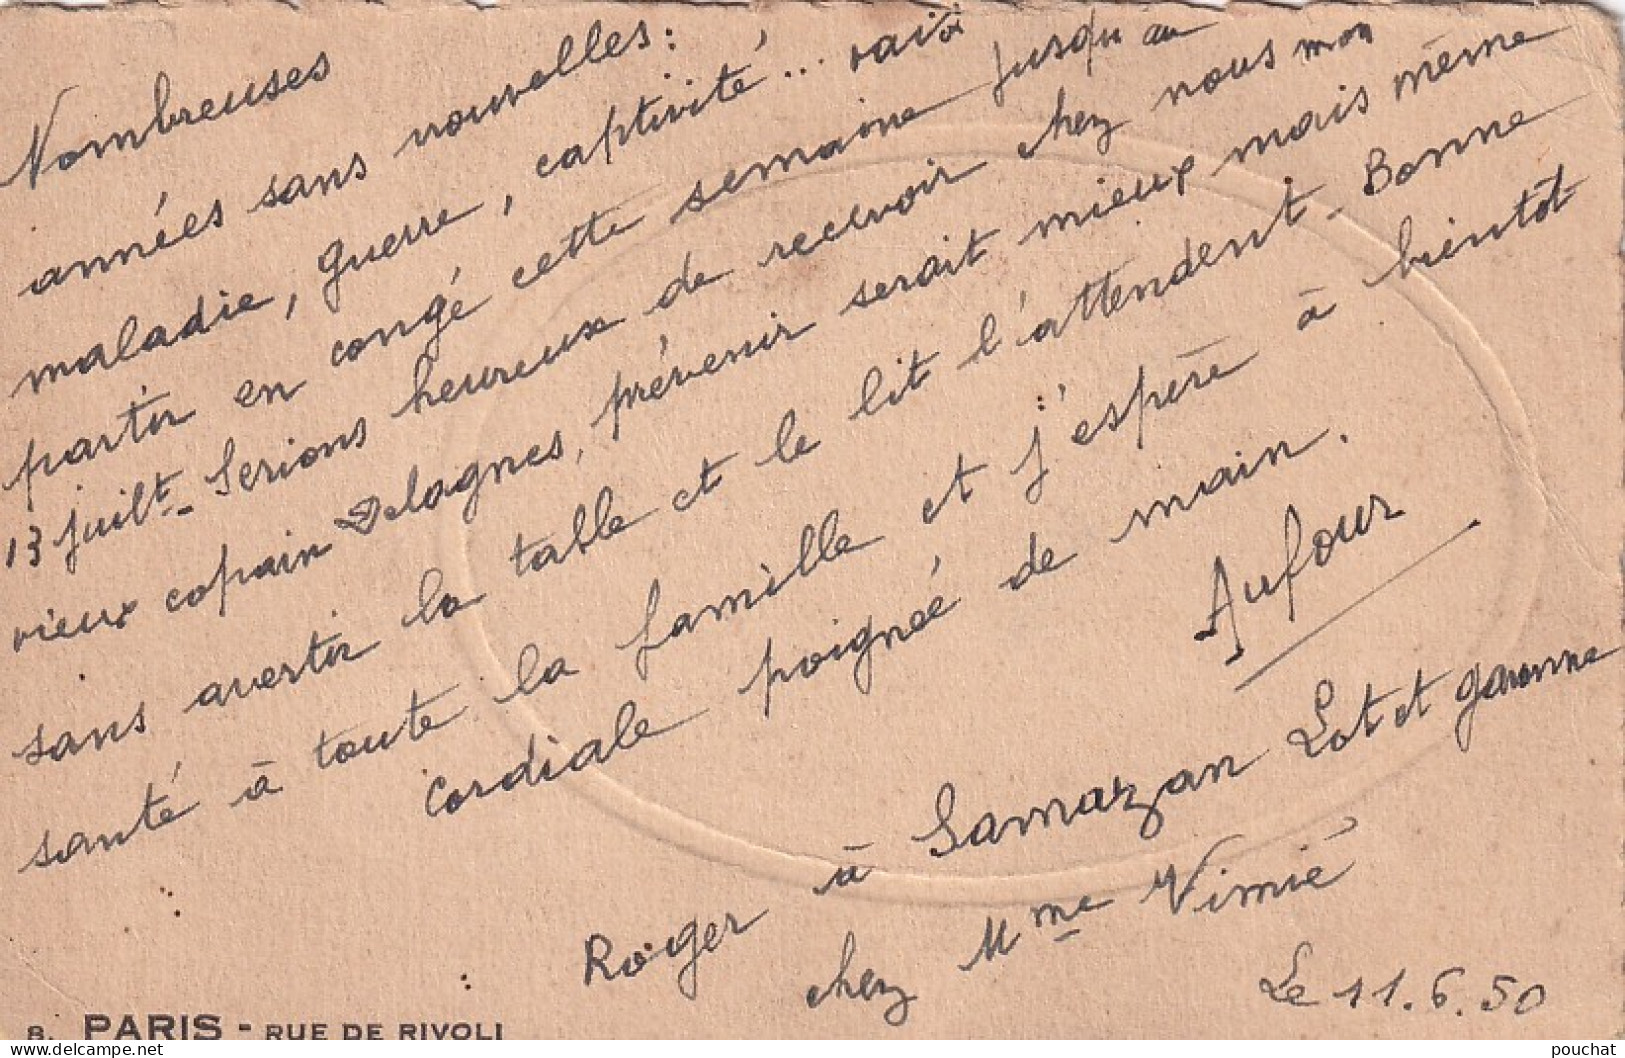 Nombreuses
années sans nouvelles:
maladie, guerre, captivité... vais
partir en congé cette semaine jusqu'au
13 juilt - Serions heureux de recevoir chez nous mon
vieux copain Delagnes, prévenir serait mieux mais même
sans avertir la table et le lit l'attendent - Bonne
santé à toute la famille et j'espère à bientôt
cordiale poignée de main.
Aufour
Roger à Samazan Lot et garonne
chez Mme Vimié
Le 11.6.50
8. PARIS - RUE DE RIVOLI
pouchat